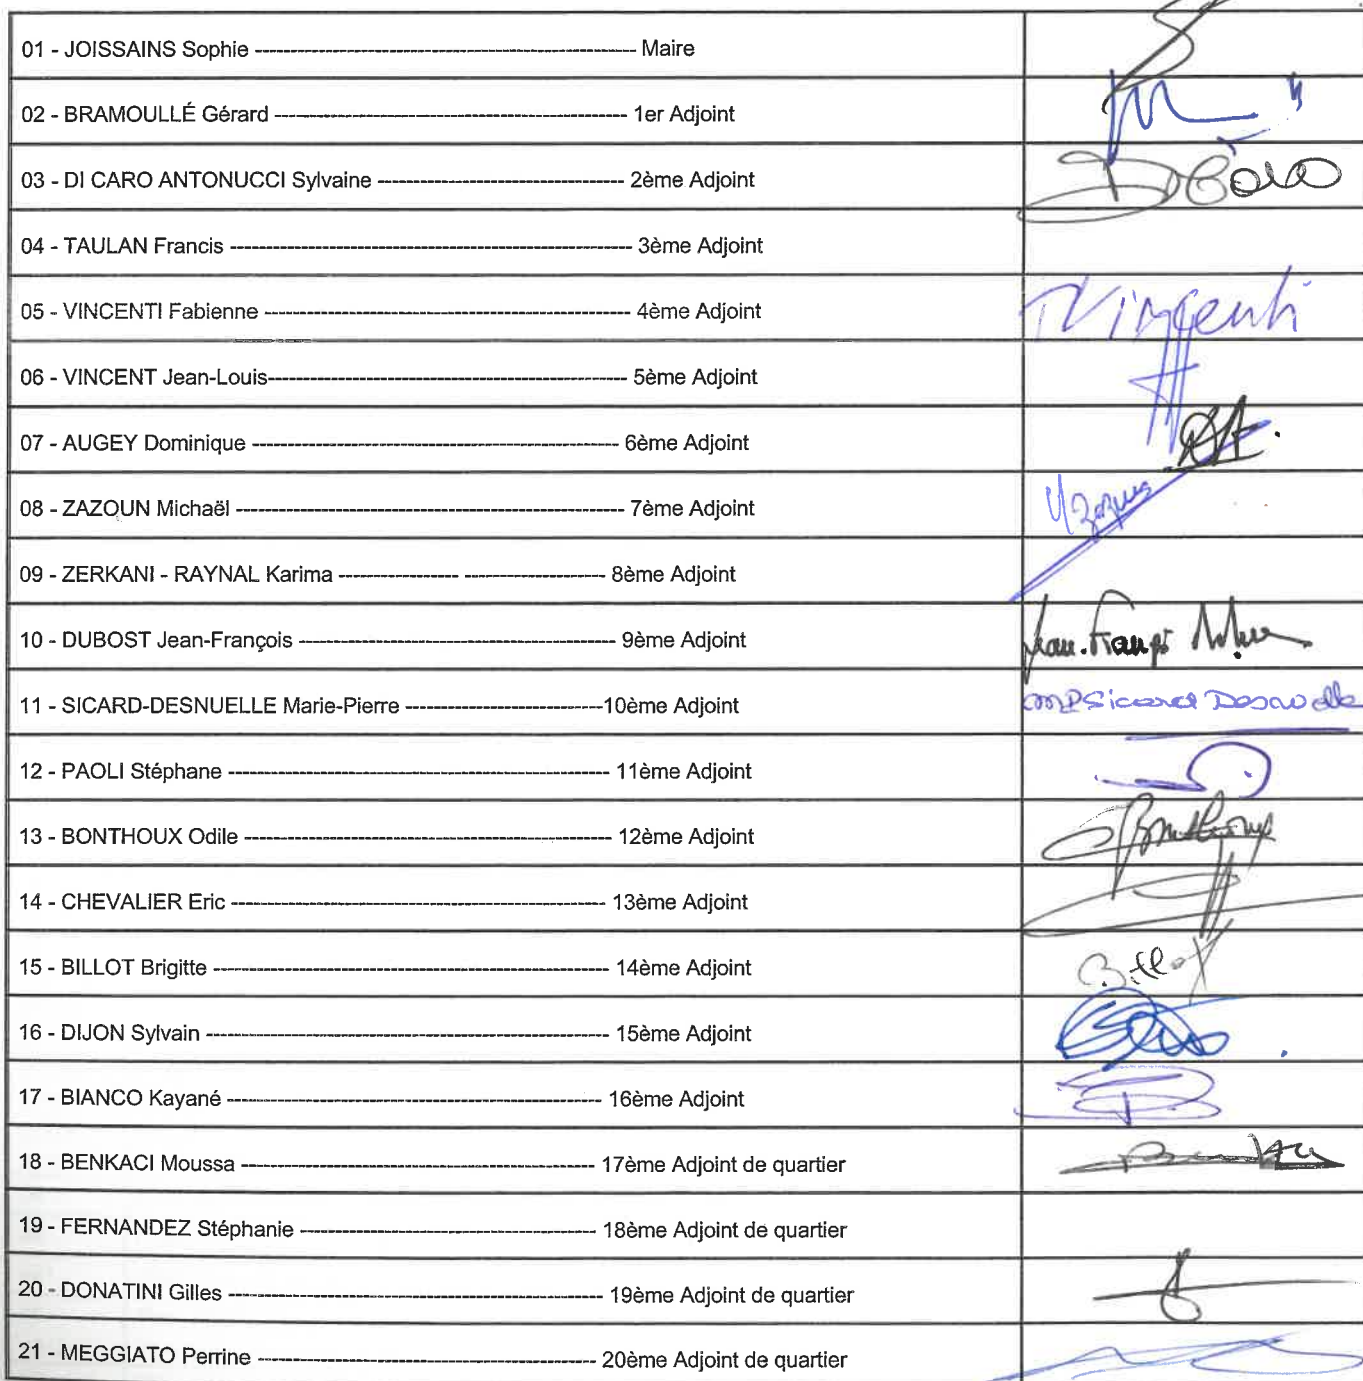 01 - JOISSAINS Sophie ---------------------------------------------------- Maire
02 - BRAMOULLÉ Gérard ------------------------------------------------ 1er Adjoint
03 - DI CARO ANTONUCCI Sylvaine ---------------------------------- 2ème Adjoint
DiCaro
04 - TAULAN Francis ------------------------------------------------------- 3ème Adjoint
05 - VINCENTI Fabienne -------------------------------------------------- 4ème Adjoint
Vincenti
06 - VINCENT Jean-Louis------------------------------------------------- 5ème Adjoint
07 - AUGEY Dominique -------------------------------------------------- 6ème Adjoint
08 - ZAZOUN Michaël ----------------------------------------------------- 7ème Adjoint
09 - ZERKANI - RAYNAL Karima ----------------- -------------------- 8ème Adjoint
10 - DUBOST Jean-François -------------------------------------------- 9ème Adjoint
Jean-François
11 - SICARD-DESNUELLE Marie-Pierre ---------------------------10ème Adjoint
MPSicard Desnuelle
12 - PAOLI Stéphane ---------------------------------------------------- 11ème Adjoint
13 - BONTHOUX Odile -------------------------------------------------- 12ème Adjoint
Bonthoux
14 - CHEVALIER Eric --------------------------------------------------- 13ème Adjoint
15 - BILLOT Brigitte ------------------------------------------------------ 14ème Adjoint
Billot
16 - DIJON Sylvain ------------------------------------------------------- 15ème Adjoint
17 - BIANCO Kayané --------------------------------------------------- 16ème Adjoint
18 - BENKACI Moussa ------------------------------------------------- 17ème Adjoint de quartier
19 - FERNANDEZ Stéphanie ----------------------------------------- 18ème Adjoint de quartier
20 - DONATINI Gilles --------------------------------------------------- 19ème Adjoint de quartier
21 - MEGGIATO Perrine ---------------------------------------------- 20ème Adjoint de quartier